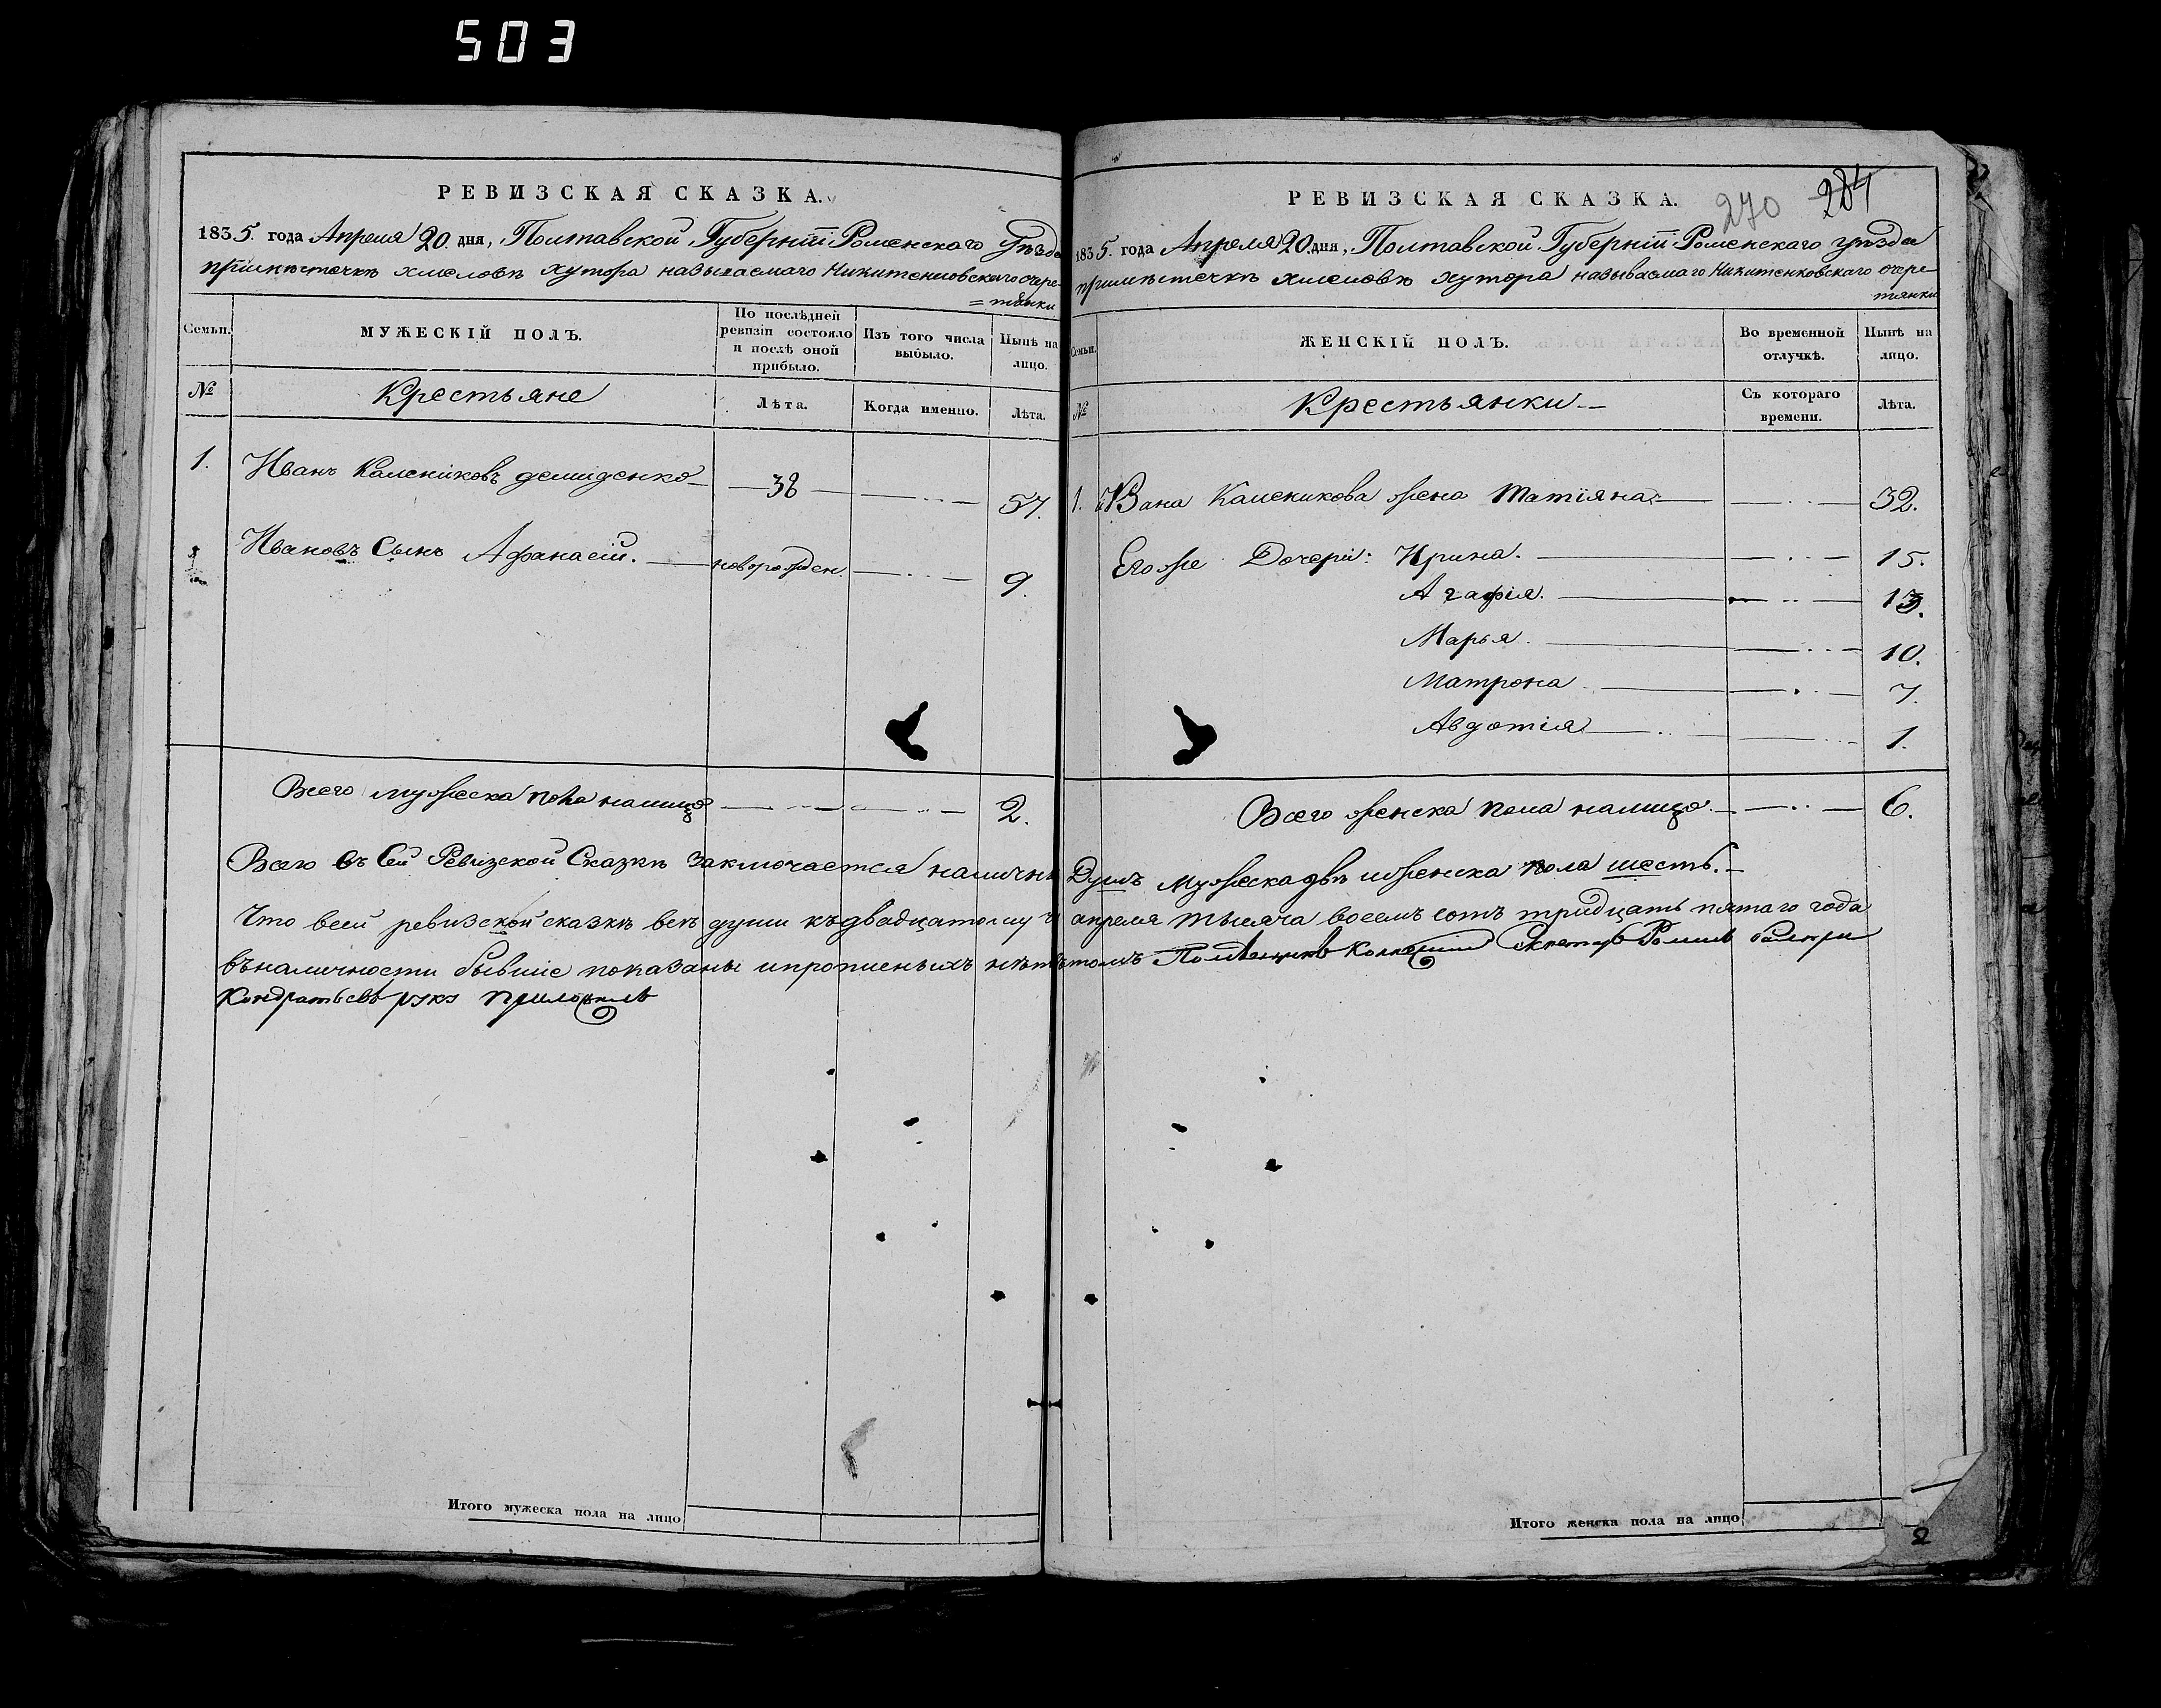 503
РЕВИЗСКАЯ СКАЗКА.
1835. года Апреля 20. дня, Полтавской Губерніи Роменского Уѣзда
примѣстечкѣ хмеловѣ хутора называемаго Никитенковскаго очере-
=тянки
Семьи.
МУЖЕСКІЙ ПОЛЪ.
По послѣдней ревизіи состояло и послѣ оной прибыло.
Изъ того числа выбыло.
Нынѣ на лицо.
№
Крестьяне
Лѣта.
Когда именно.
Лѣта.
1. Иванъ Калениковъ демиденко 38 57.
Ивановъ Сынъ Афанасій. новорожден. 9.
Всего мужеска пола налицо 2.
Всего въ Сей Ревизской Сказкѣ Заключается наличны
Что всей ревизской сказкѣ всѣ души къдвадцатому ч
въналичности бывшіе показаны ипрописныхъ нѣтъ
Кондратьевъ руку приложилъ
Итого мужеска пола на лицо
РЕВИЗСКАЯ СКАЗКА.
270 284
1835. года Апреля 20. дня, Полтавской Губерніи Роменского уѣзда
примѣстечкѣ хмеловѣ хутора называемаго Никитенковскаго очере-
тянки
Семьи.
ЖЕНСКІЙ ПОЛЪ.
Во временной отлучкѣ.
Нынѣ на лицо.
№
Крестьянки
Съ котораго времени.
Лѣта.
1. Ивана Каленикова жена Татіяна 32.
Егоже Дочери: Ирина. 15.
Агафія. 13.
Марья. 10.
Матрона 7.
Авдотія 1.
Всего женска пола налицо. 6.
Душъ Мужескадвѣ иженска пола шесть.
апреля тысяча восемъ сотъ тридцать пятаго года
томъ Помѣщикъ Колежскій Секретаръ
Итого женска пола на лицо
2